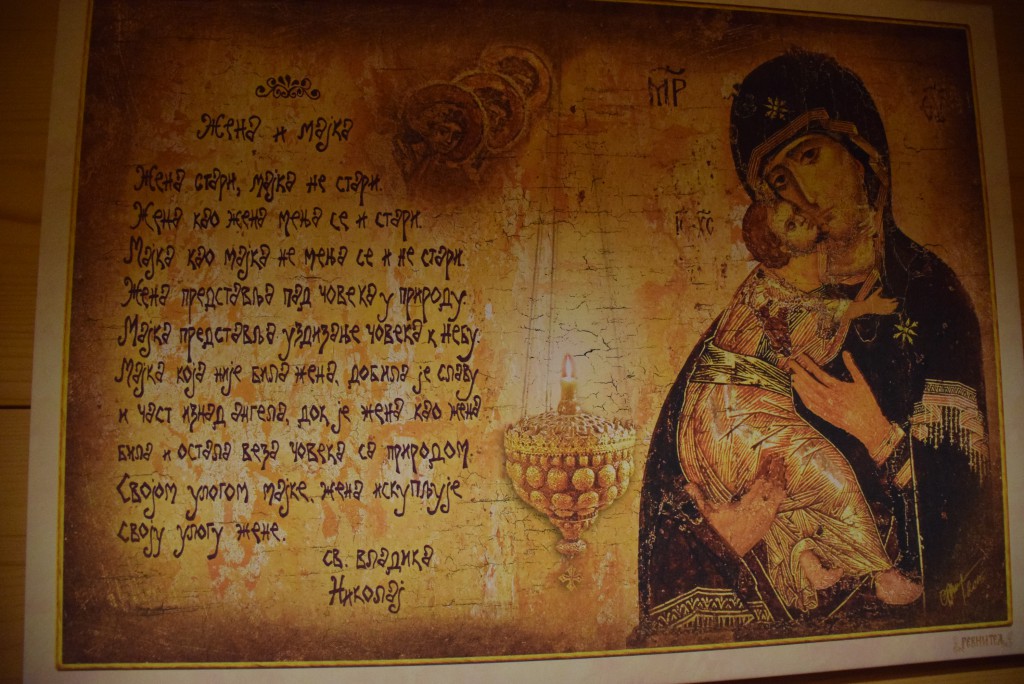 Жена и мајка
Жена стари, мајка не стари.
Жена као жена мења се и стари.
Мајка као мајка не мења се и не стари.
Жена представља пад човека у природу.
Мајка представља уздизање човека к небу.
Мајка која није била жена, добила је славу
и част изнад ангела, док је жена као жена
била и остала веза човека са природом.
Својом улогом мајке, жена искупљује
своју улогу жене.
св. владика
Николај
МР
ІС ХС
РЕВНИТЕЉ